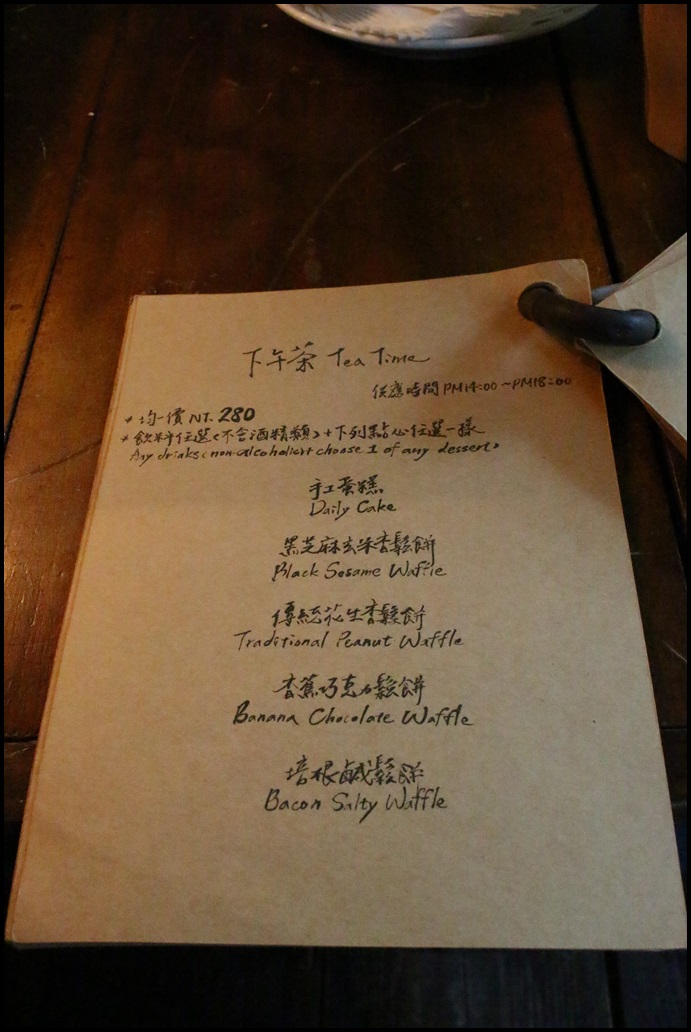 下午茶 Tea Time
供應時間 PM14:00~PM18:00
* 均一價 NT. 280
* 飲料任選(不含酒精類)+下列點心任選一樣
Any drinks (non-alcoholic)+ choose 1 of any dessert)
手工蛋糕
Daily Cake
黑芝麻玄米香鬆餅
Black Sesame Waffle
傳統花生香鬆餅
Traditional Peanut Waffle
香蕉巧克力鬆餅
Banana Chocolate Waffle
培根鹹鬆餅
Bacon Salty Waffle